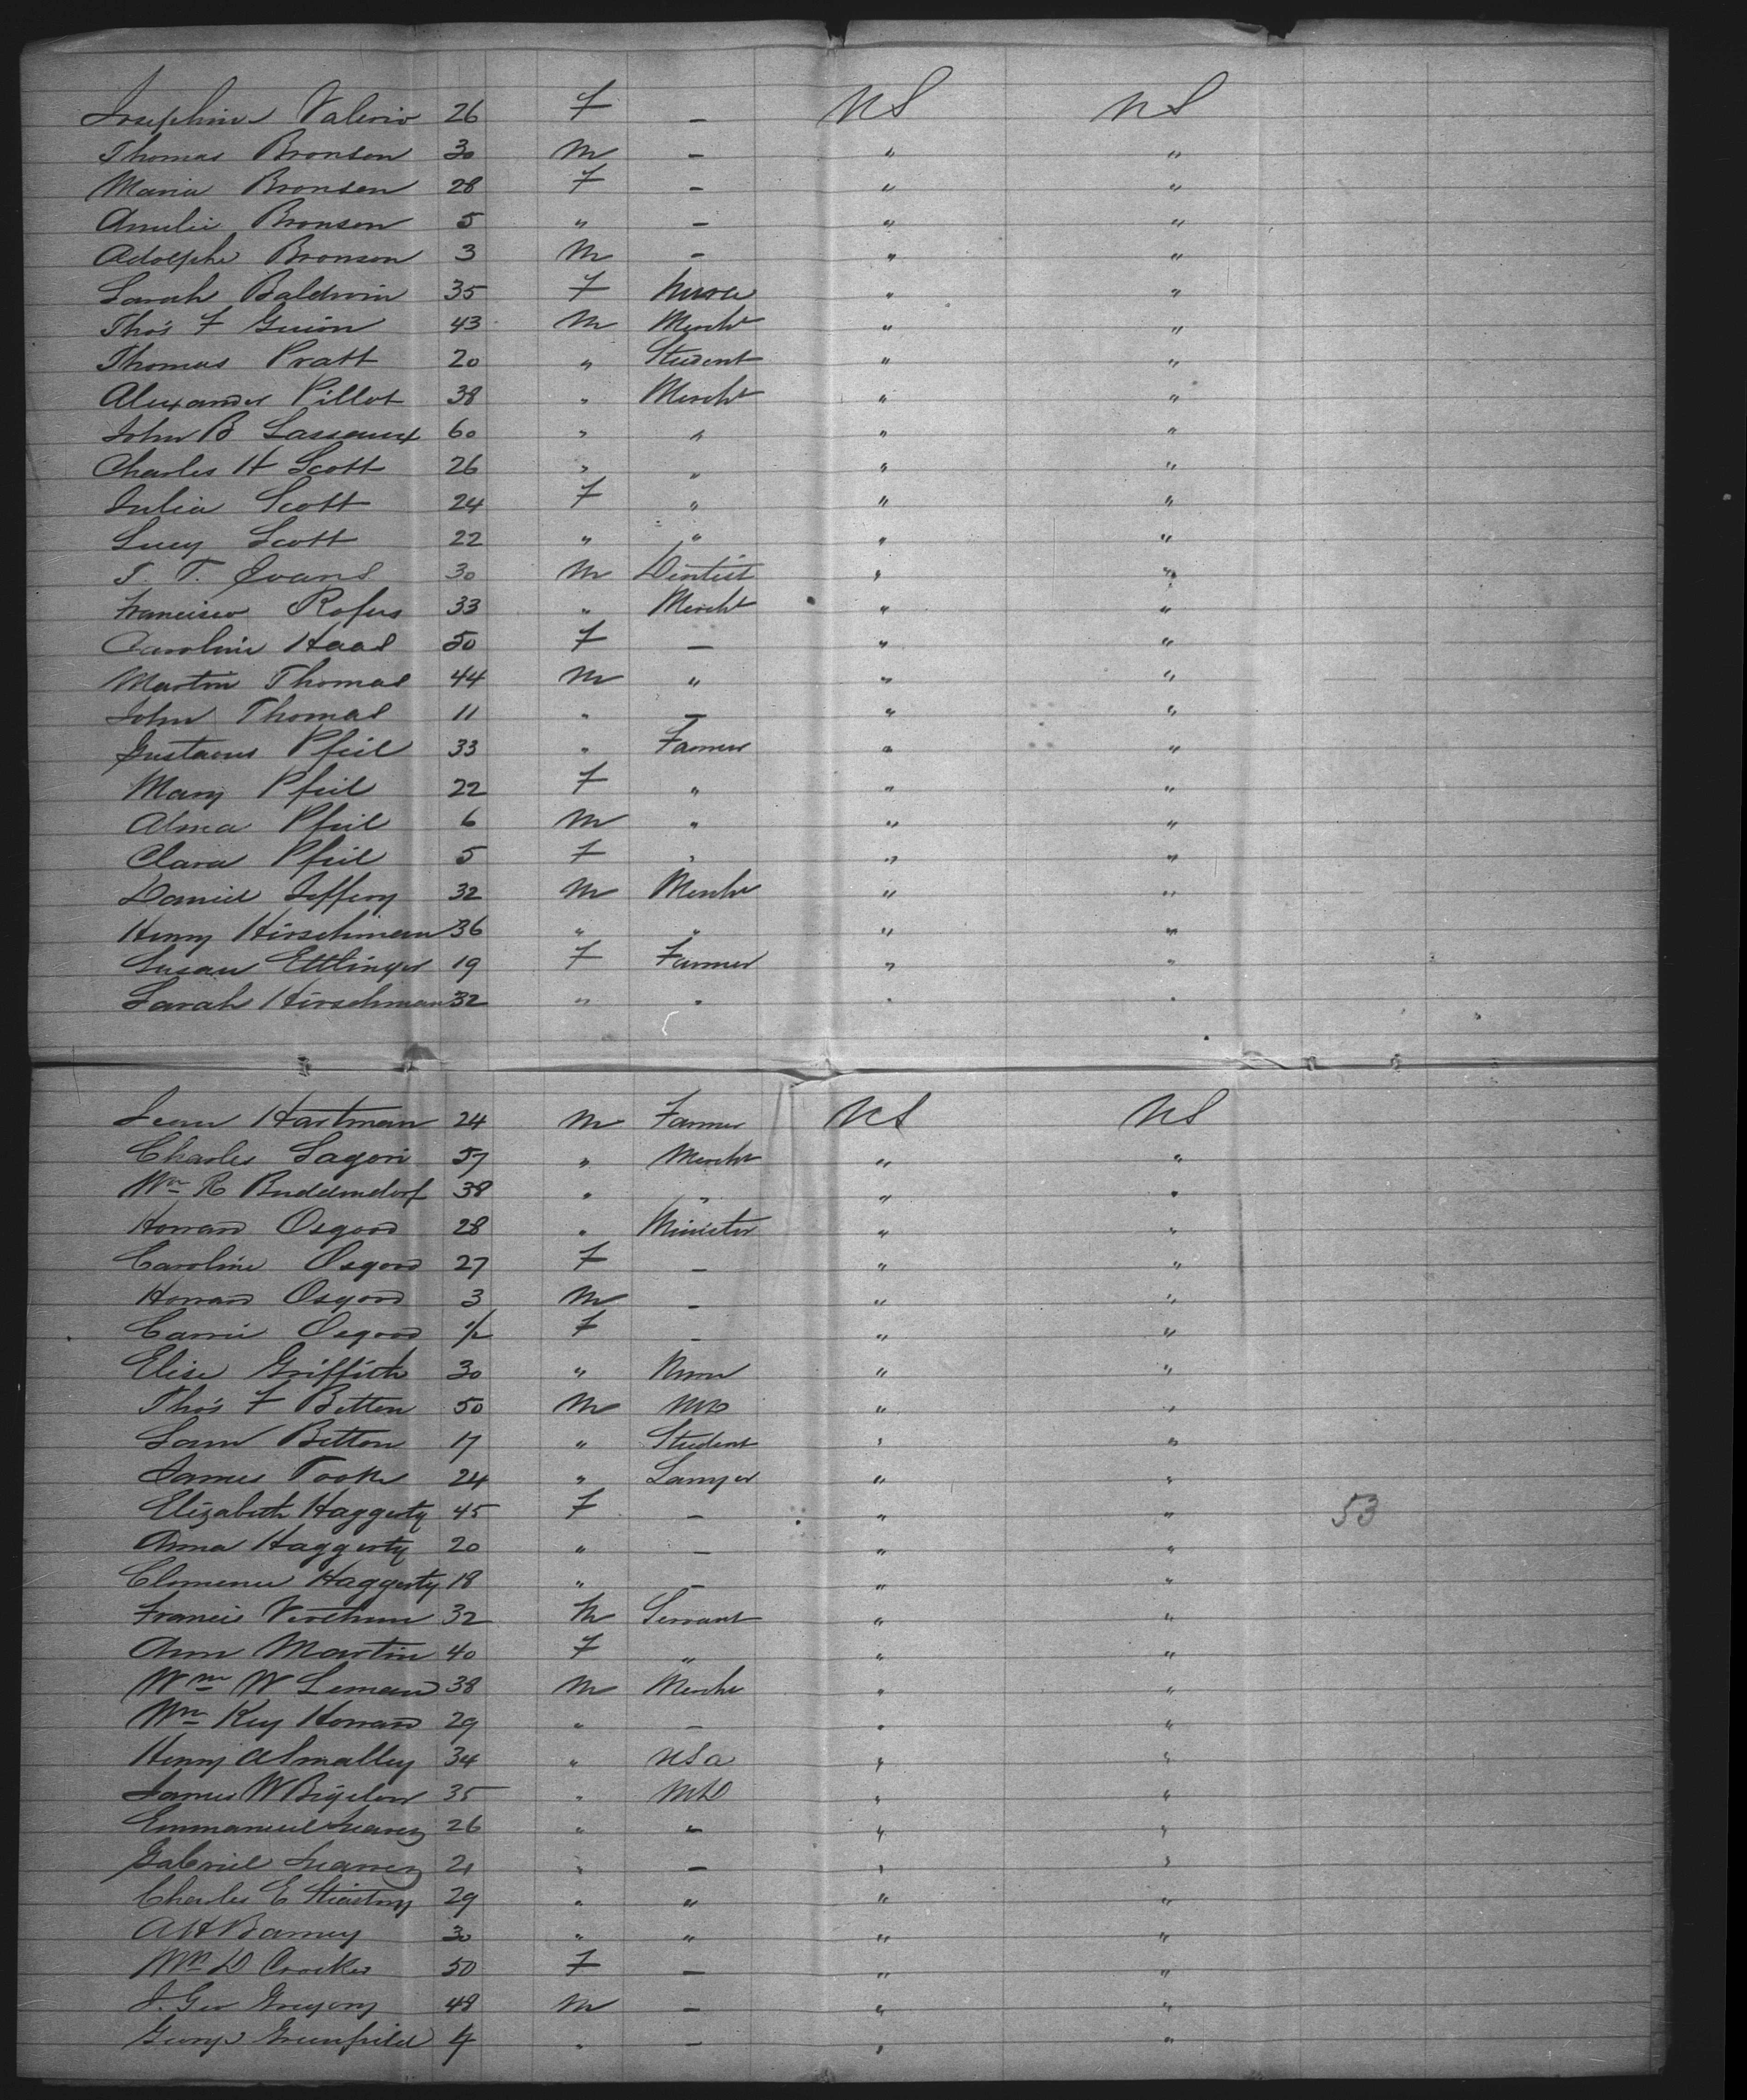 Josephine Valerio 26 F — US US
Thomas Bronson 30 M — " "
Maria Bronson 28 F — " "
Amelie Bronson 5 " — " "
Adolphe Bronson 3 M — " "
Sarah Baldwin 35 F Nurse " "
Tho's F Guion 43 M Mercht " "
Thomas Pratt 20 " Student " "
Alexander Pillot 38 " Mercht " "
John B Lassaux 60 " " " "
Charles H Scott 26 " " " "
Julia Scott 24 F " " "
Lucy Scott 22 " " " "
T. T. Evans 30 M Dentist " "
Francisco Rofus 33 " Mercht " "
Caroline Haas 50 F — " "
Martin Thomas 44 M " " "
John Thomas 11 " — " "
Gustavus Pfeil 33 " Farmer " "
Mary Pfeil 22 F " " "
Alma Pfeil 6 M " " "
Clara Pfeil 5 F " " "
Daniel Jeffery 32 M Mercht " "
Henry Hirschman 36 " " " "
Susan Ettlinger 19 F Farmer " "
Sarah Hirschman 32 " " " "
Hartman 24 M Farmer US US
Charles Lagori 57 " Mercht " "
Wm R Buddendorf 38 " " " "
Howard Osgood 28 " Minister " "
Caroline Osgood 27 F — " "
Howard Osgood 3 M — " "
Carrie Osgood 1/2 F — " "
Elise Griffith 30 " Nurse " "
Tho's F Betton 50 M MD " "
Sam Betton 17 " Student " "
James Tooke 24 " Lawyer " "
Elizabeth Haggerty 45 F — " " 53
Anna Haggerty 20 " — " "
Haggerty 18 " — " "
Francis 32 M Servant " "
Ann Martin 40 F " " "
Wm W Leman 38 M Mercht " "
Wm Key Howard 29 " — " "
Henry A Smalley 34 " USA " "
James W Bigelow 35 " MD " "
Emmanuel Suarez 26 " " " "
Gabriel Suarez 21 " — " "
Charles E 29 " " " "
A H Barney 30 " " " "
D Crocker 50 F — " "
J. Geo Gregory 48 M — " "
George Greenfield 4 " — " "